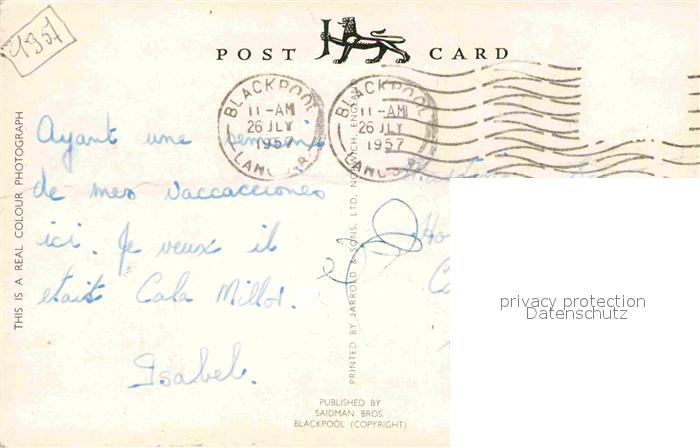 1957
POST CARD
BLACKPOOL
11-AM
26 JLY
1957
LANCS.
BLACKPOOL
11-AM
26 JLY
1957
LANCS.
THIS IS A REAL COLOUR PHOTOGRAPH
Ayant une semaine
de mes vaccacciones
ici. Je veux il
etait Cala Millor.
Isabel.
PRINTED BY JARROLD & SONS, LTD, NORWICH, ENGLAND
privacy protection
Datenschutz
PUBLISHED BY
SAIDMAN BROS.
BLACKPOOL (COPYRIGHT)